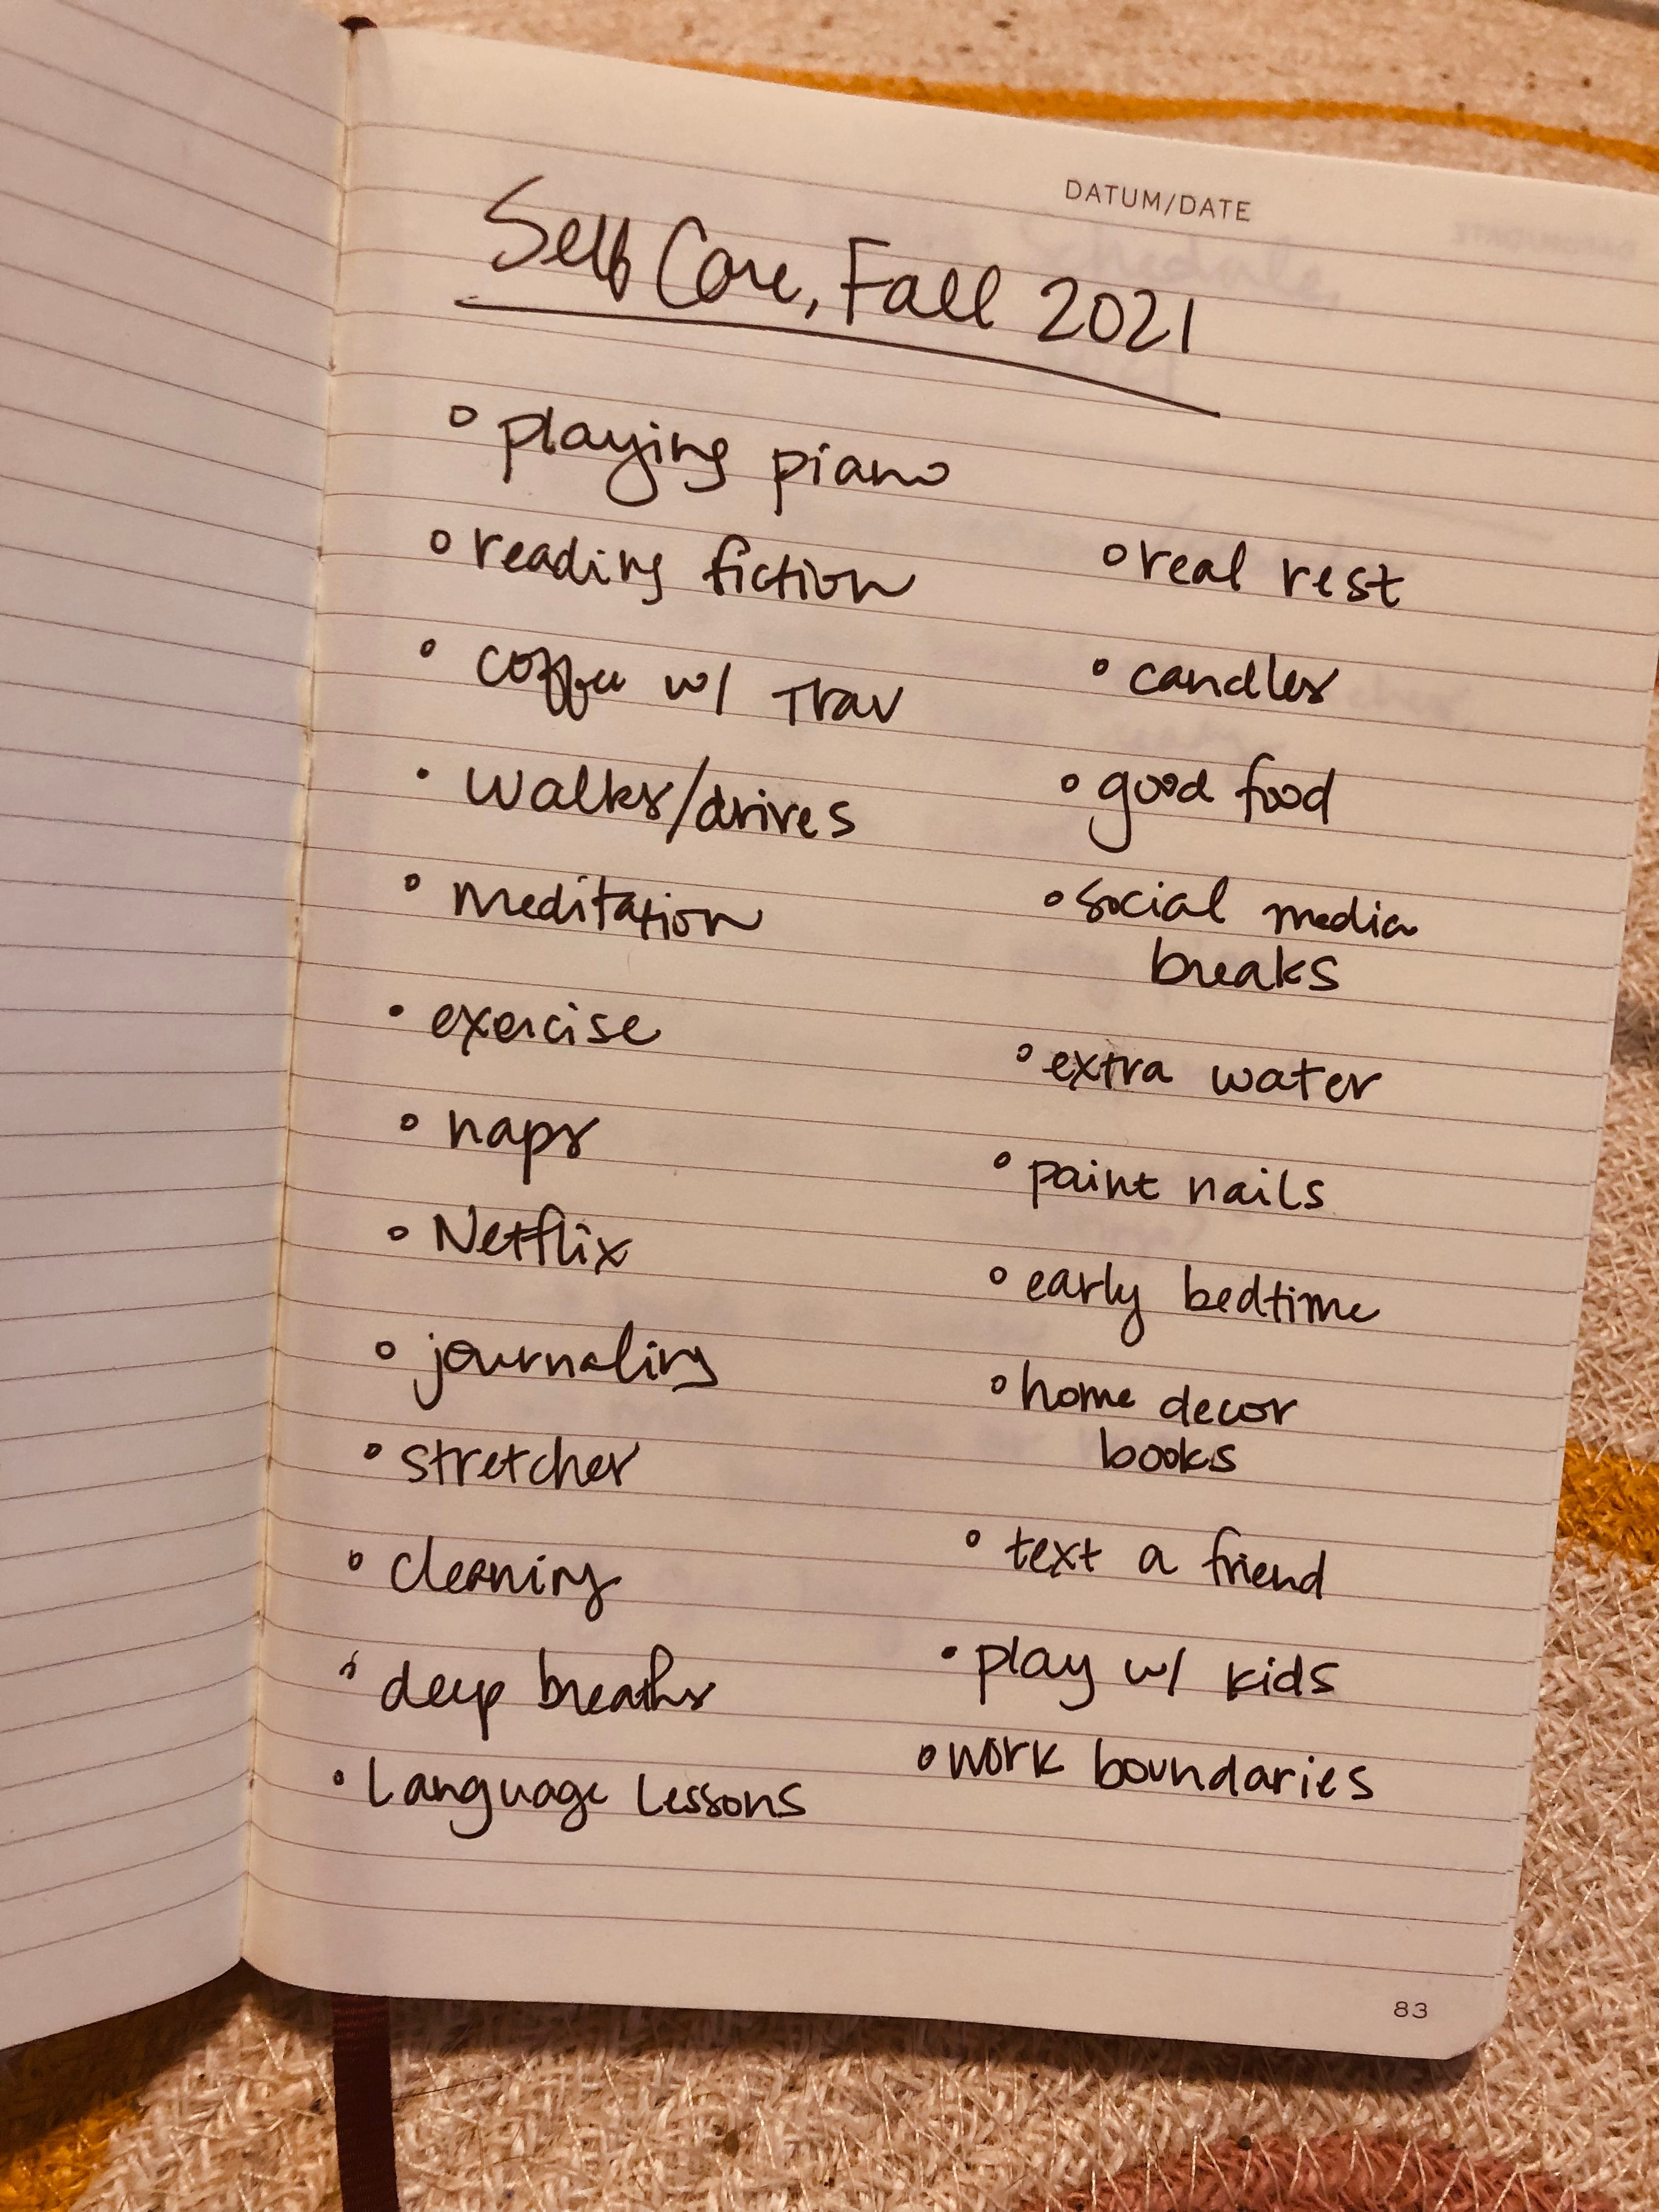 DATUM/DATE
Self Care, Fall 2021
° playing piano
° reading fiction
° coffee w/ Trav
° walks/drives
° meditation
° exercise
° naps
° Netflix
° journaling
° stretches
° cleaning
° deep breaths
° language lessons
° real rest
° candles
° good food
° social media
breaks
° extra water
° paint nails
° early bedtime
° home decor
books
° text a friend
° play w/ kids
° work boundaries
83